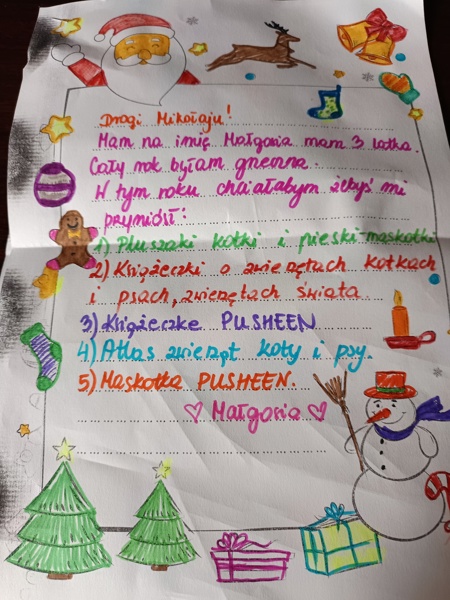 Drogi Mikołaju!
Mam na imię Małgosia mam 3 latka.
Cały rok byłam grzeczna.
W tym roku chciałabym żebyś mi
przyniósł:
1) Pluszaki kotki i pieski-maskotki
2) Książeczki o zwierzętach kotkach
i psach, zwierzętach świata.
3) Książeczkę PUSHEEN
4) Atlas zwierząt koty i psy.
5) Maskotka PUSHEEN.
♡ Małgosia ♡